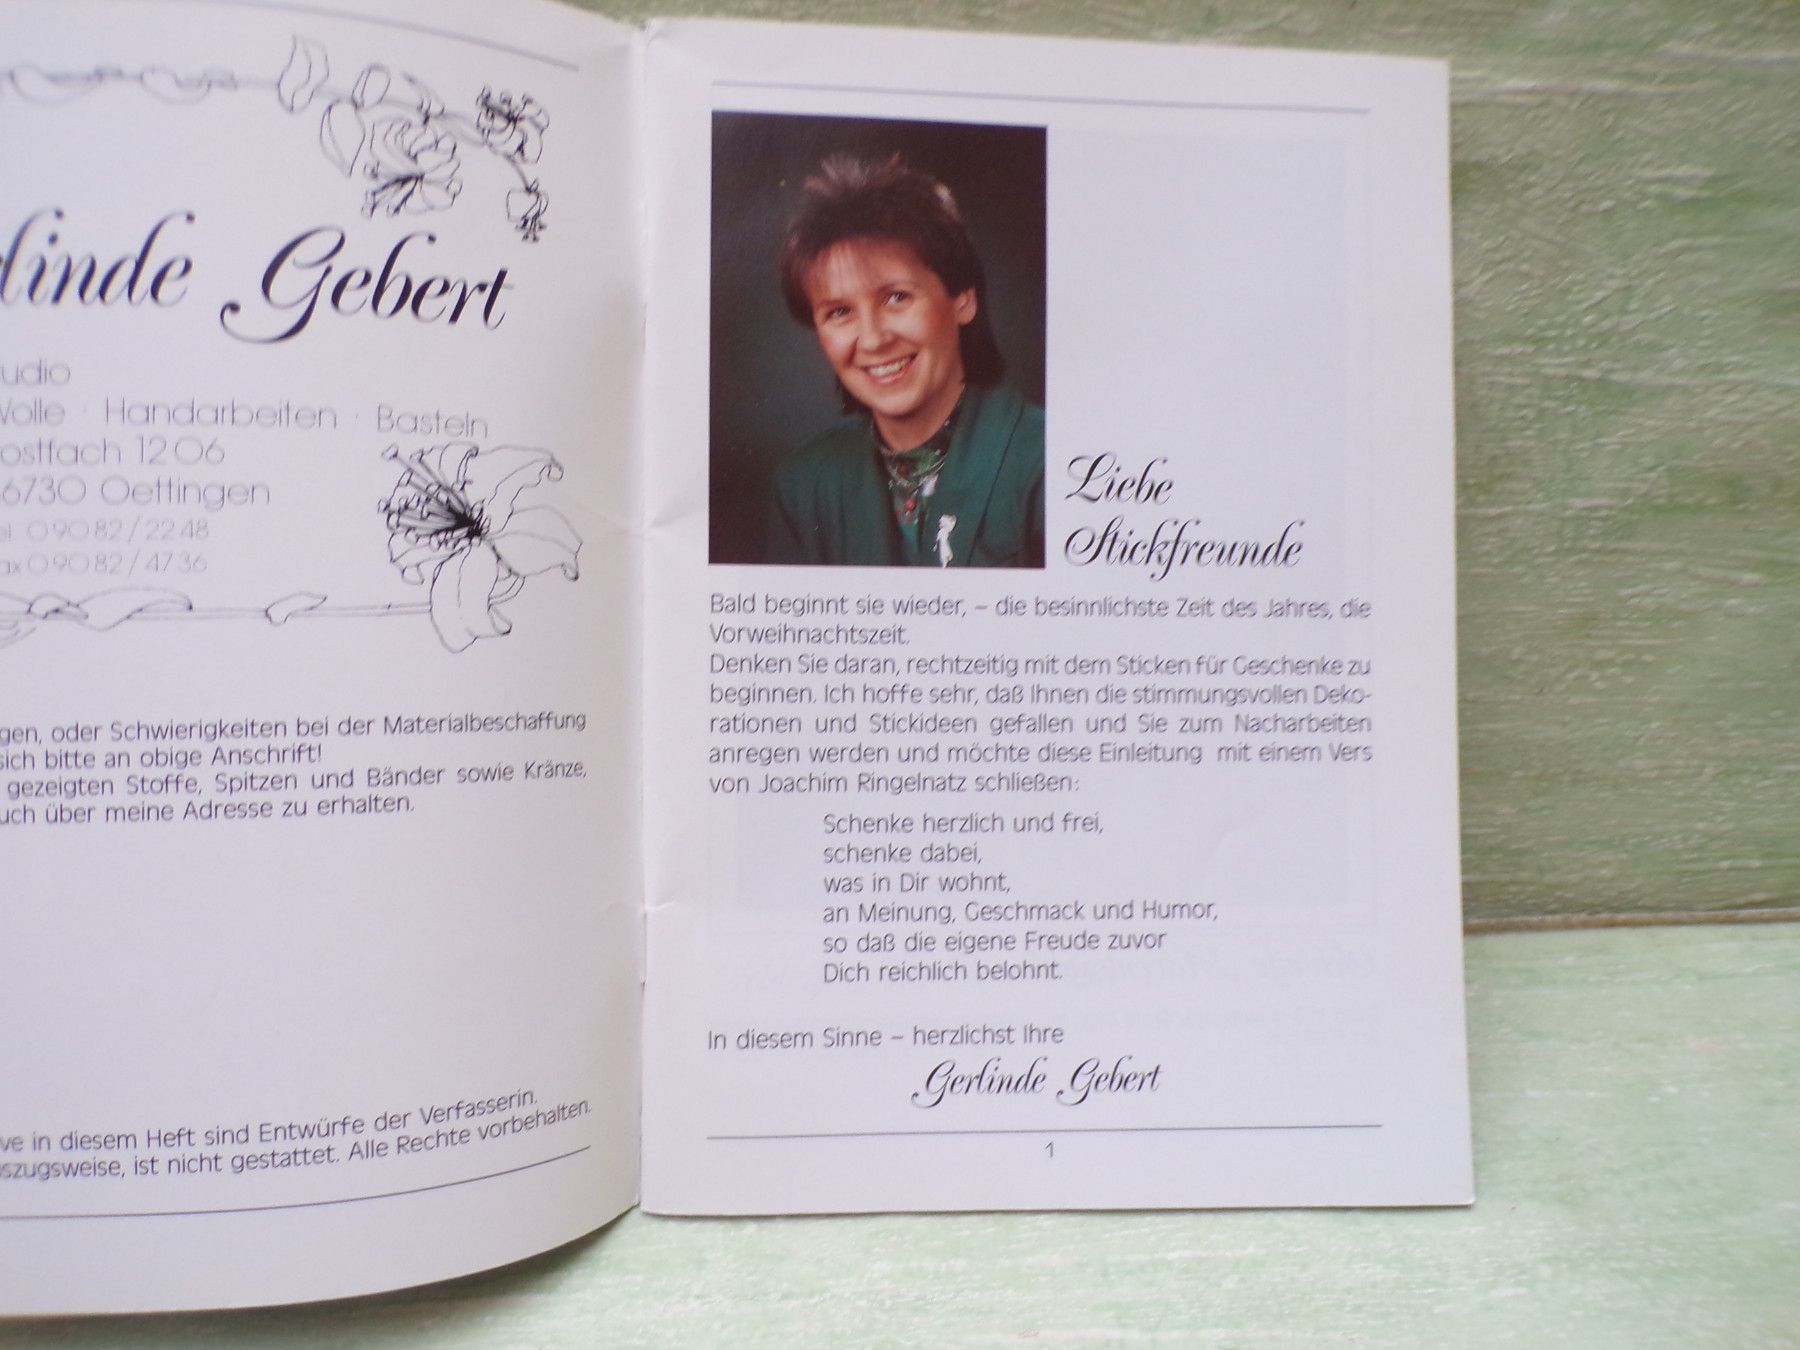 Gebert
Handarbeiten · Basteln
12 06
Oettingen
09082/2248
09082/4736
oder Schwierigkeiten bei der Materialbeschaffung
sich bitte an obige Anschrift!
gezeigten Stoffe, Spitzen und Bänder sowie Kränze,
über meine Adresse zu erhalten.
in diesem Heft sind Entwürfe der Verfasserin.
ist nicht gestattet. Alle Rechte vorbehalten.
Liebe
Stickfreunde
Bald beginnt sie wieder, – die besinnlichste Zeit des Jahres, die
Vorweihnachtszeit.
Denken Sie daran, rechtzeitig mit dem Sticken für Geschenke zu
beginnen. Ich hoffe sehr, daß Ihnen die stimmungsvollen Deko-
rationen und Stickideen gefallen und Sie zum Nacharbeiten
anregen werden und möchte diese Einleitung mit einem Vers
von Joachim Ringelnatz schließen:
Schenke herzlich und frei,
schenke dabei,
was in Dir wohnt,
an Meinung, Geschmack und Humor,
so daß die eigene Freude zuvor
Dich reichlich belohnt.
In diesem Sinne – herzlichst Ihre
Gerlinde Gebert
1